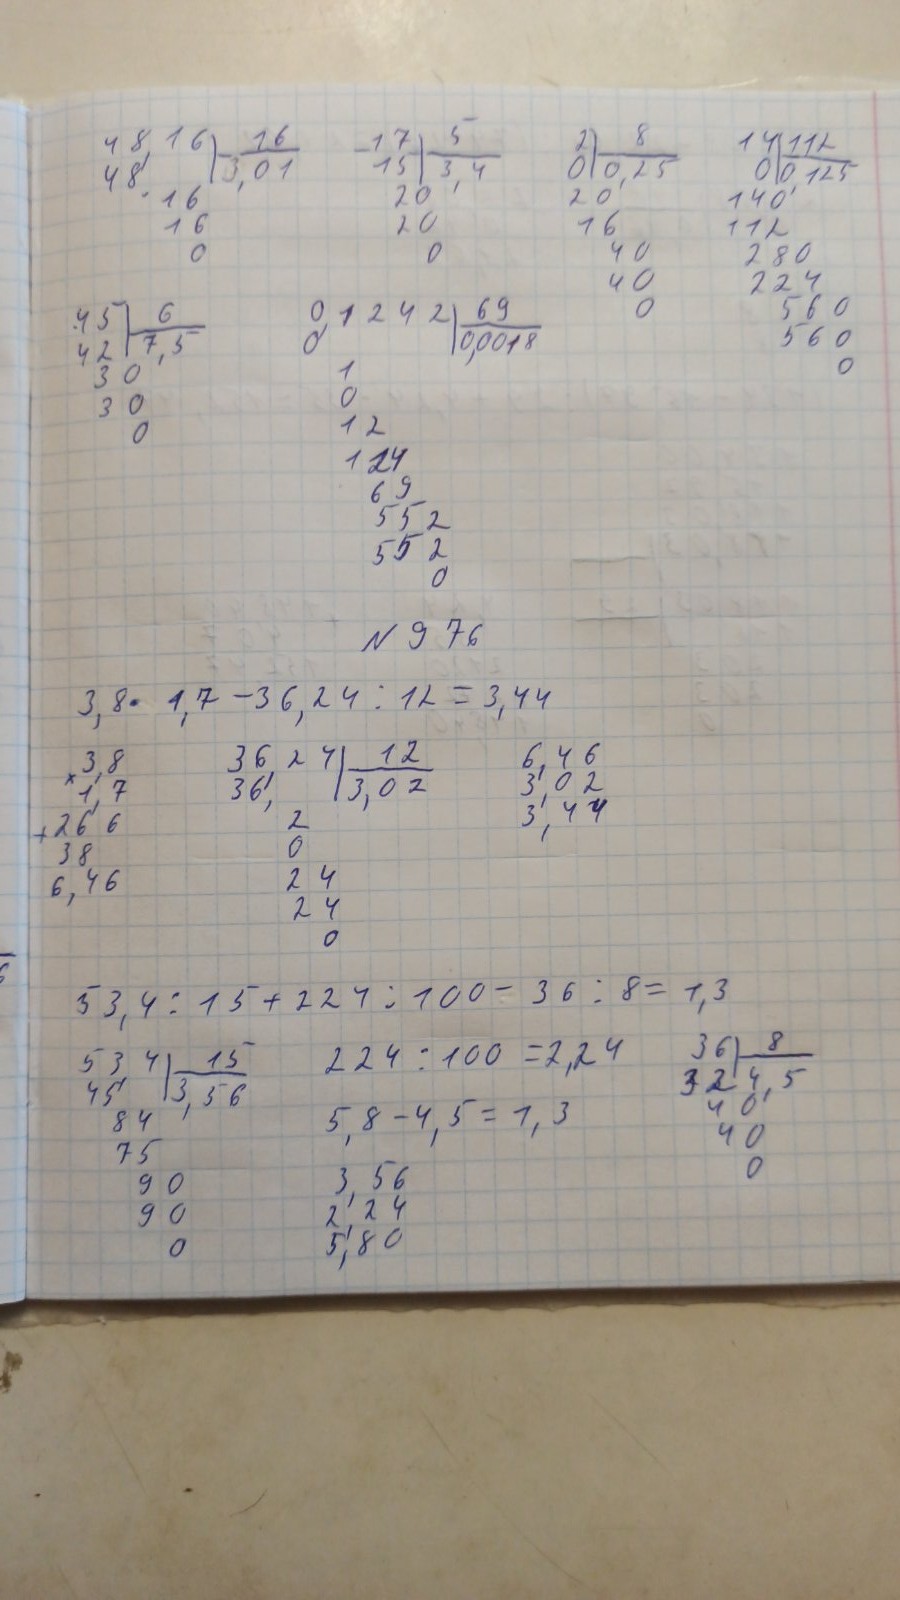 48,16 16 -17 5 2 8 14 112
48 3,01 15 3,4 0 0,25 0 0,125
16 20 20 140
16 20 16 112
0 0 40 280
40 224
0 560
560
0
45 6 0 1242 69
42 7,5 0 0,0018
30 1
30 0
0 12
124
69
552
552
0
N 976
3,8 · 1,7 - 36,24 : 12 = 3,44
× 3,8 36,24 12 6,46
1,7 36, 3,02 3,02
+ 266 2 3,44
38 0
6,46 24
24
0
53,4 : 15 + 224 : 100 - 36 : 8 = 1,3
53,4 15 224 : 100 = 2,24 36 8
45 3,56 32 4,5
84 5,8 - 4,5 = 1,3 40
75 40
90 3,56 0
90 2,24
0 5,80